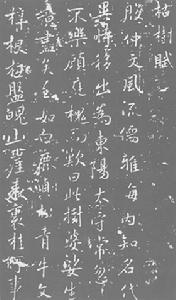 枯樹賦
殷仲文風流儒雅海內知名代
異時移出為東陽太守常忽
不樂顧庭槐而歎曰此樹婆娑生
意盡矣至如白鹿貞松青牛文
梓根柢盤魄山崖表裏桂何事